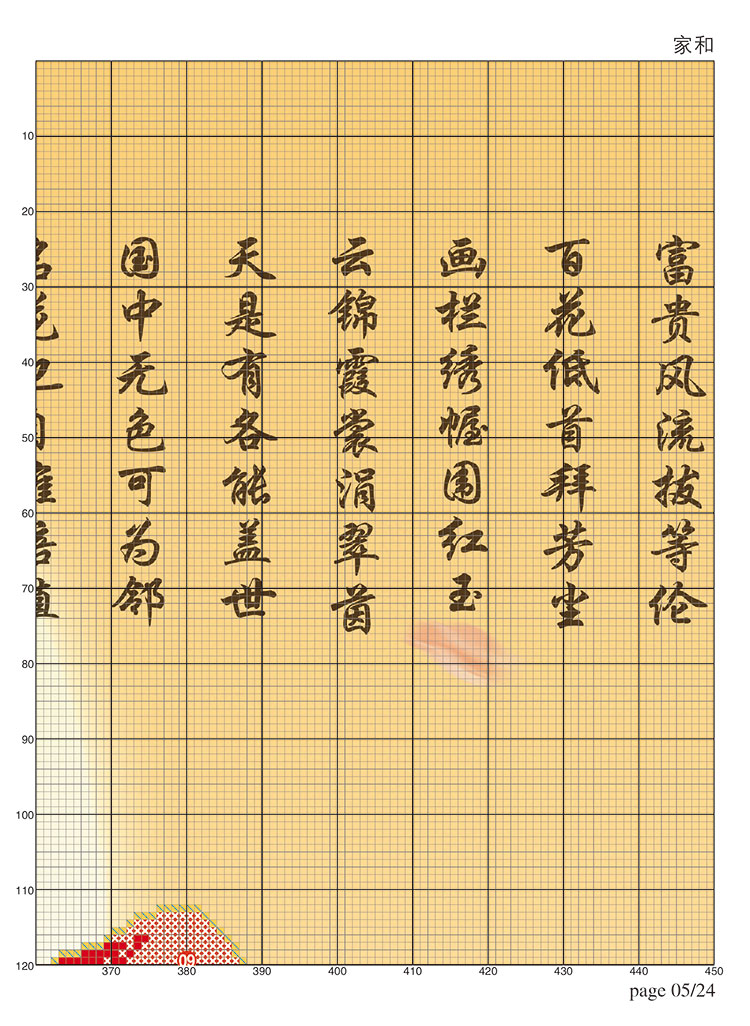 家和
富贵风流拔等伦
百花低首拜芳尘
画栏绣幄围红玉
云锦霞裳涓翠茵
天是有各能盖世
国中无色可为邻
10
20
30
40
50
60
70
80
90
100
110
120
09
370 380 390 400 410 420 430 440 450
page 05/24